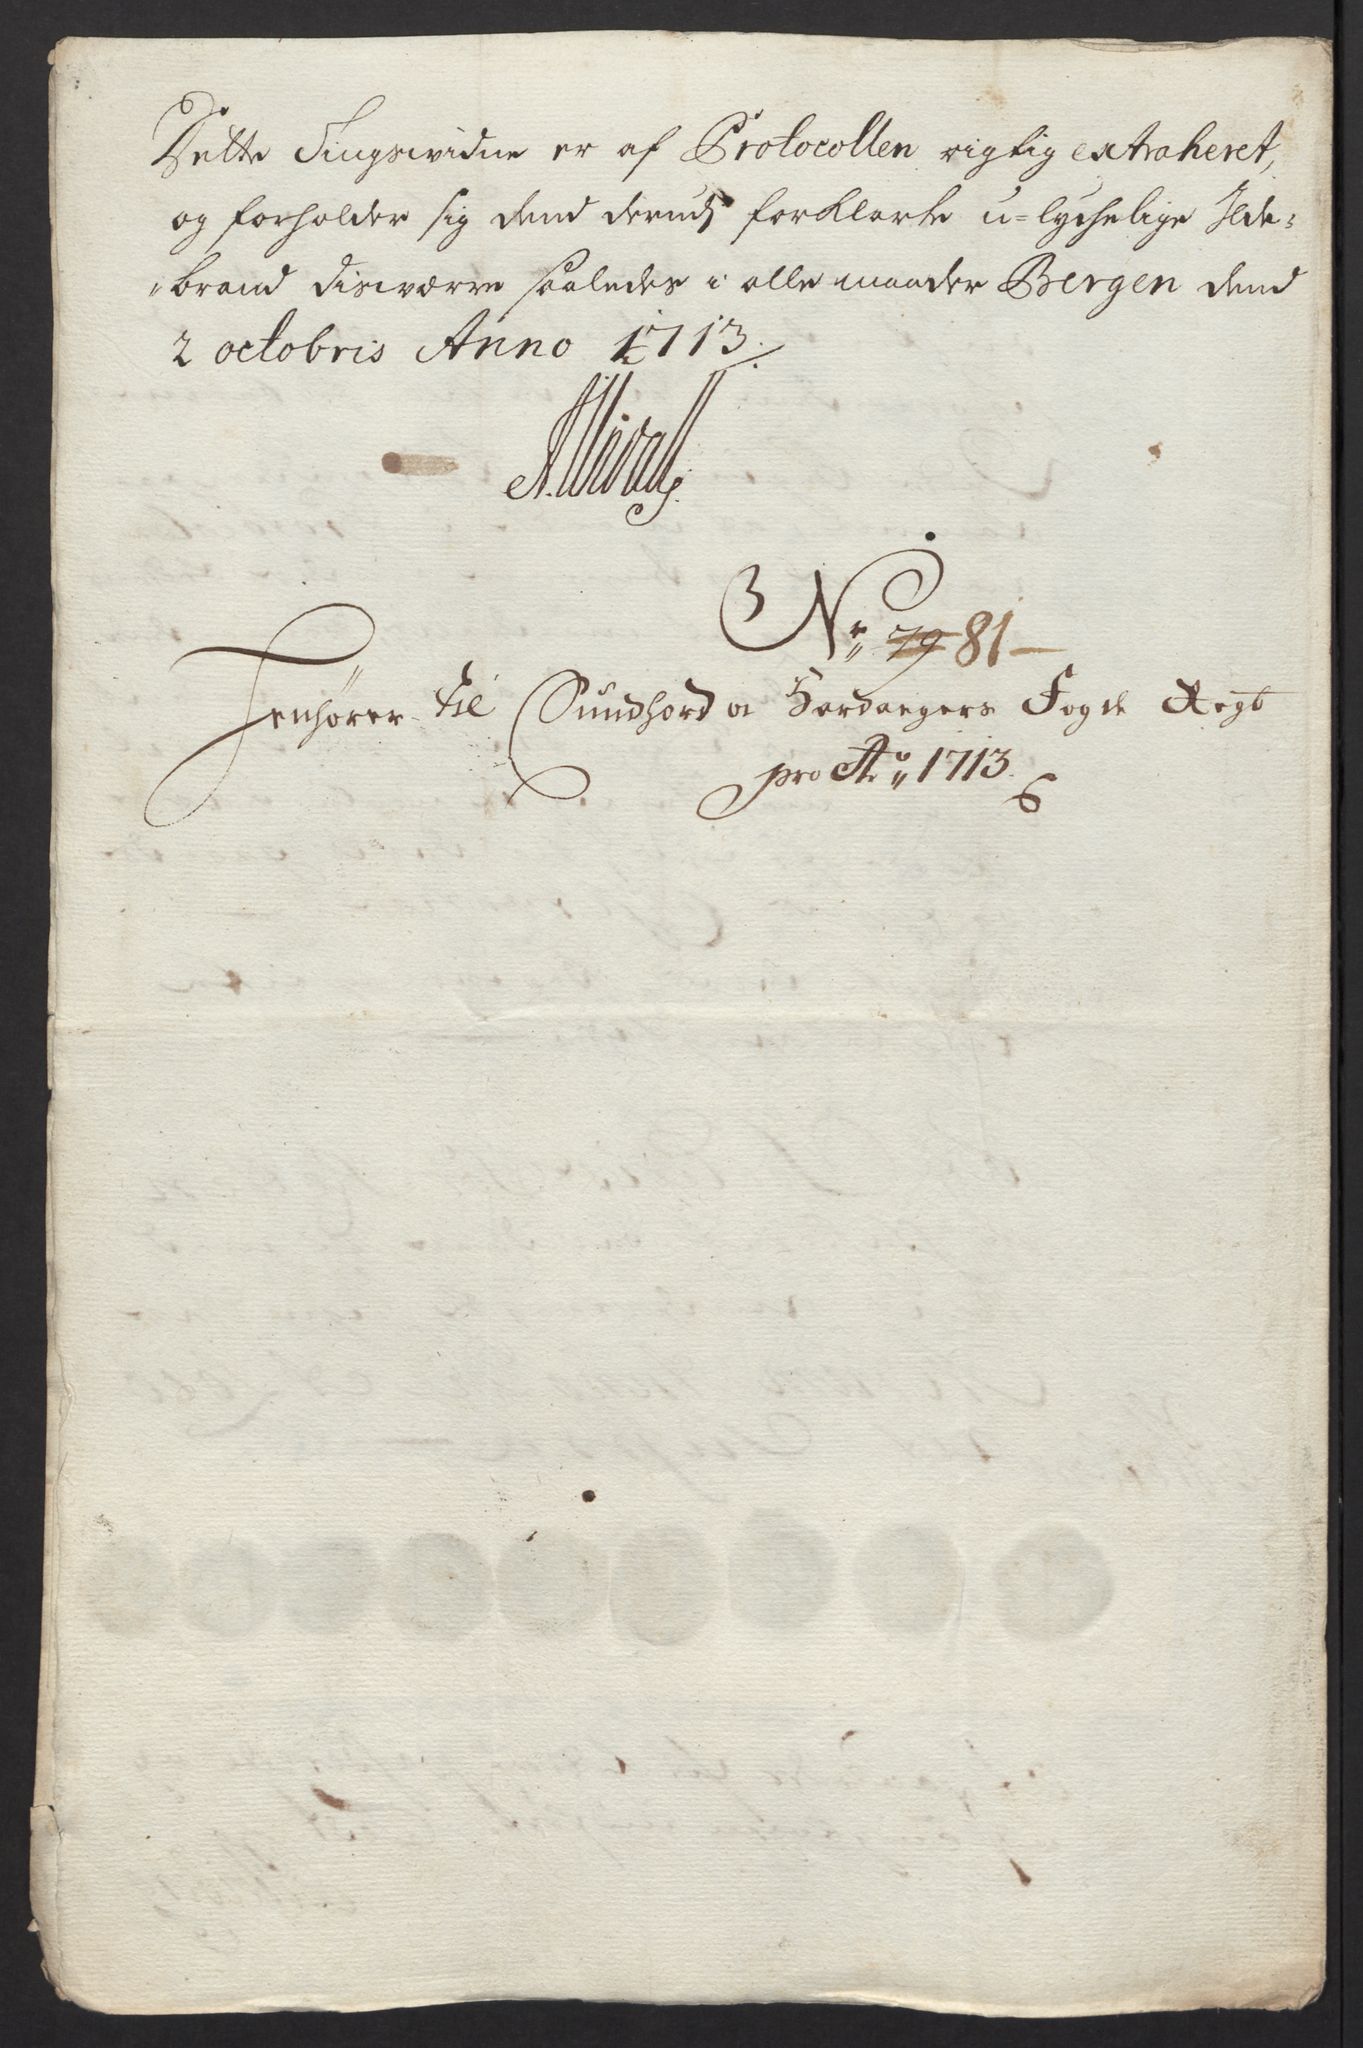 Dette Tingsvidne er af Protocollen rigtig extraheret,
og forholder sig dend derudj forklarte u=lychelige Ilde=
=brand disværre saaledes i alle maader Bergen dend
2 octobris Anno 1713.
No 79 81
Henhører til Sundhord og Hardangers Fogde Regt
pro Ao 1713.